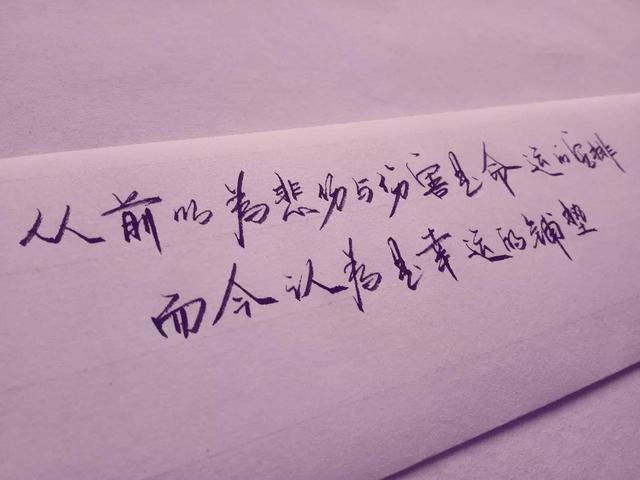 从前以为悲伤与伤害是命运的安排
而今认为是幸运的铺垫